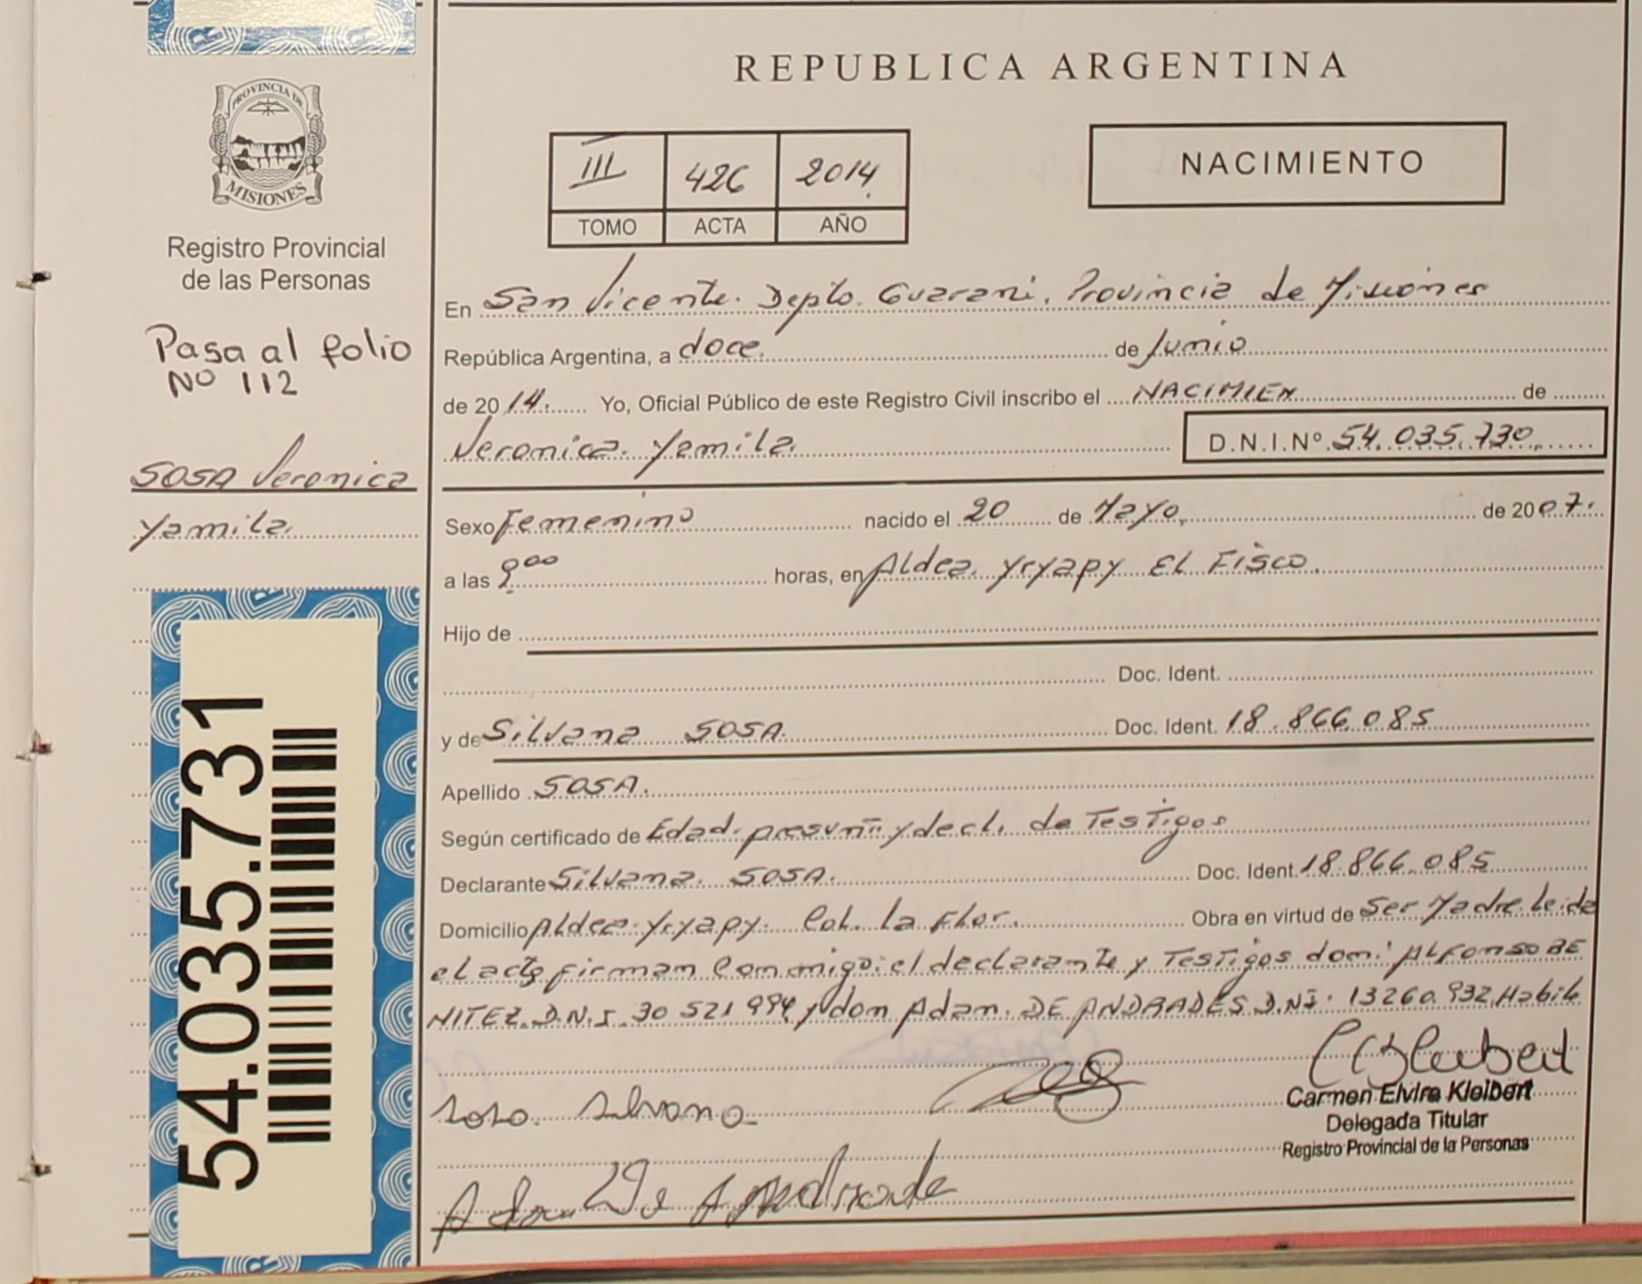 PROVINCIA DE
MISIONES
Registro Provincial
de las Personas
Pasa al folio
Nº 112
SOSA Veronica
Yamila.
54.035.731
REPUBLICA ARGENTINA
III 426 2014
TOMO ACTA AÑO
NACIMIENTO
En San Vicente. Depto. Guarani. Provincia de Misiones
República Argentina, a doce. de Junio
de 2014. Yo, Oficial Público de este Registro Civil inscribo el NACIMIEN de
Veronica. Yamila. D.N.I.Nº 54.035.730
Sexo Femenino nacido el 20 de Mayo. de 2007.
a las 9ººº horas, en Aldea Yryapy El Fisco.
Hijo de
Doc. Ident.
y de Silvana SOSA. Doc. Ident. 18.866.085
Apellido SOSA.
Según certificado de Edad. presunt. y decl. de Testigos
Declarante Silvana. SOSA. Doc. Ident. 18.866.085
Domicilio Aldea. Yryapy. Col. La Flor. Obra en virtud de Ser Madre. Leida
el acta firman Conmigo: el declarante y Testigos don: ALFONSO BE
NITEZ. D.N.I. 30 521 994 y don Adan. DE ANDRADES D.N.I. 13260.932 Habil
Soso Silvano
Carmen Elvira Kleibert
Delegada Titular
Registro Provincial de la Personas
Adan De Andrade